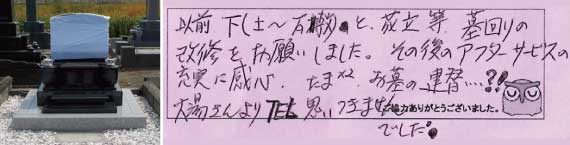 以前 下し土〜 と、成立 等 墓回りの
改修をお願いしました。その後のアフターサービスの
充実に感心、たま×2、お墓の建替…?!
大場さんよりTEL 思いつきません
でした。
ご協力ありがとうございました。